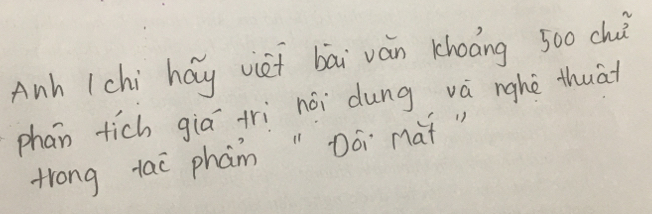 Anh / chị hãy viết bài văn khoảng 500 chữ
phân tích giá trị nội dung và nghệ thuật
trong tác phẩm " Đôi Mắt "